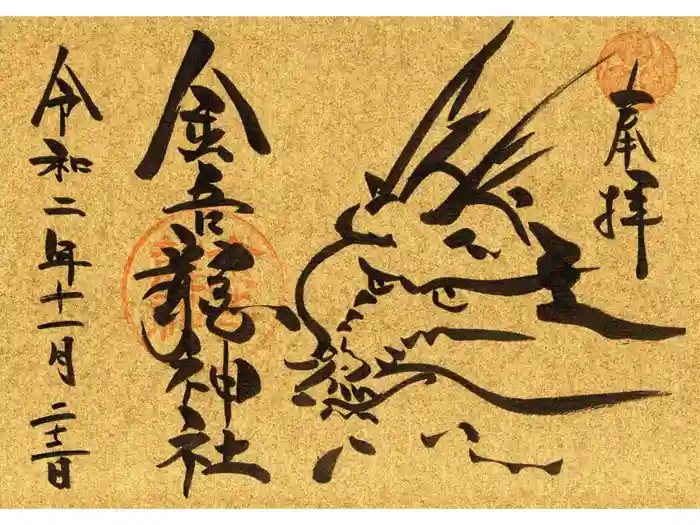 奉拝
金吾龍神社
令和二年十一月二十三日